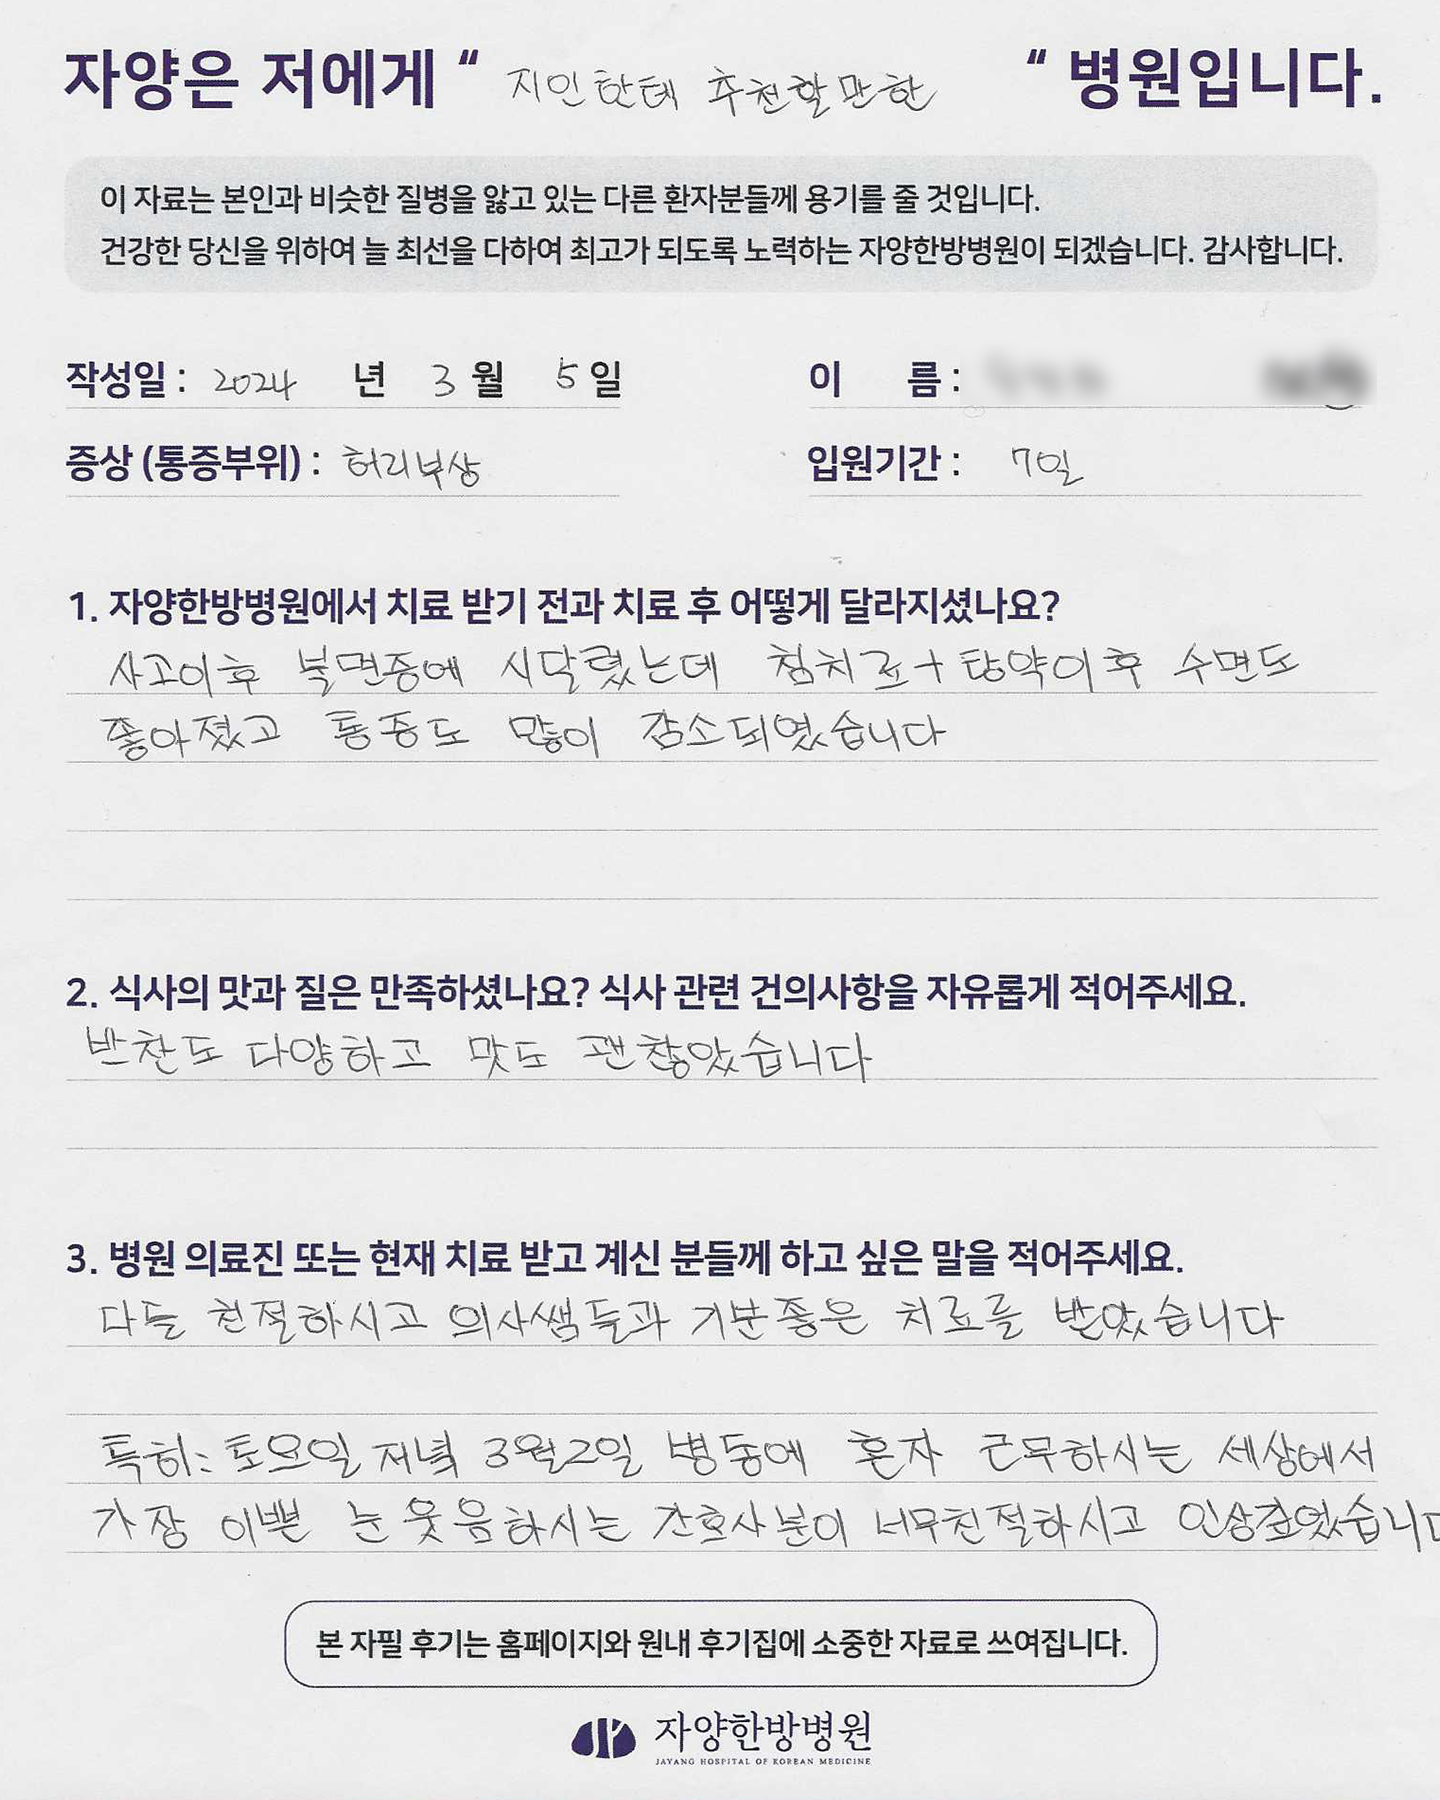 자양은 저에게 “ 지인한테 추천할만한 “ 병원입니다.
이 자료는 본인과 비슷한 질병을 앓고 있는 다른 환자분들께 용기를 줄 것입니다.
건강한 당신을 위하여 늘 최선을 다하여 최고가 되도록 노력하는 자양한방병원이 되겠습니다. 감사합니다.
작성일 : 2024 년 3 월 5 일 이 름 :
증상 (통증부위) : 허리부상 입원기간 : 7일
1. 자양한방병원에서 치료 받기 전과 치료 후 어떻게 달라지셨나요?
사고이후 불면증에 시달렸는데 침치료+탕약이후 수면도
좋아졌고 통증도 많이 감소되였습니다
2. 식사의 맛과 질은 만족하셨나요? 식사 관련 건의사항을 자유롭게 적어주세요.
반찬도 다양하고 맛도 괜찮았습니다
3. 병원 의료진 또는 현재 치료 받고 계신 분들께 하고 싶은 말을 적어주세요.
다들 친절하시고 의사쌤들과 기분좋은 치료를 받았습니다
특히: 토요일 저녁 3월2일 병동에 혼자 근무하시는 세상에서
가장 이쁜 눈웃음하시는 간호사분이 너무친절하시고 인상깊였습니다
본 자필 후기는 홈페이지와 원내 후기집에 소중한 자료로 쓰여집니다.
자양한방병원
JAYANG HOSPITAL OF KOREAN MEDICINE